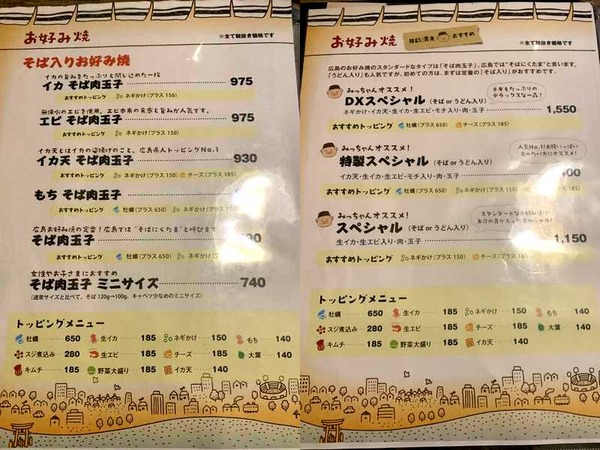 お好み焼
※全て税抜き価格です
そば入りお好み焼
イカの旨みをたっぷりと閉じ込めた一枚
イカ そば肉玉子 975
おすすめトッピング ネギかけ(プラス 150)
エビ そば肉玉子 975
おすすめトッピング ネギかけ(プラス 150)
イカ天とはイカの姿揚げのこと。広島県人トッピングNo.1
イカ天 そば肉玉子 930
おすすめトッピング ネギかけ(プラス 150) チーズ(プラス 185)
もち そば肉玉子
おすすめトッピング 牡蠣(プラス 650) ネギかけ(プラス 150)
広島お好み焼の定番!広島では"そばにくたま"と呼びます
そば肉玉子
おすすめトッピング 牡蠣(プラス 650) ネギかけ(プラス 150)
女性やお子さまにおすすめ
そば肉玉子 ミニサイズ 740
(通常サイズと比べて、そば 120g→100g、キャベツ少なめのミニサイズ)
トッピングメニュー
牡蠣 650 生イカ 185 ネギかけ 150 もち 140
スジ煮込み 280 生エビ 185 チーズ 185 大葉 140
キムチ 185 野菜大盛り 185 イカ天 140
お好み焼
おすすめ
※全て税抜き価格です
広島のお好み焼のスタンダードなタイプは「そば肉玉子」。広島では"そばにくたま"と言います。
「うどん入り」も人気ですが、初めての方は、まずは定番の「そば入り」がおすすめです。
みっちゃんオススメ!
ネギもたっぷりのデラックスな一品!
DXスペシャル (そば or うどん入り) 1,550
ネギかけ・イカ天・生イカ・生エビ・モチ入り・肉・玉子
おすすめトッピング 牡蠣(プラス 650) チーズ(プラス 185)
みっちゃんオススメ!
人気No.1!お腹いっぱい食べたい方にオススメ!
特製スペシャル (そば or うどん入り)
イカ天・生イカ・生エビ・モチ入り・肉・玉子
おすすめトッピング 牡蠣(プラス 650) ネギかけ(プラス 150)
みっちゃんオススメ!
スペシャル (そば or うどん入り) 1,150
生イカ・生エビ入り・肉・玉子
おすすめトッピング 牡蠣(プラス 650) ネギかけ(プラス 150)
トッピングメニュー
牡蠣 650 生イカ 185 ネギかけ 150 もち 140
スジ煮込み 280 生エビ 185 チーズ 185 大葉 140
キムチ 185 野菜大盛り 185 イカ天 140